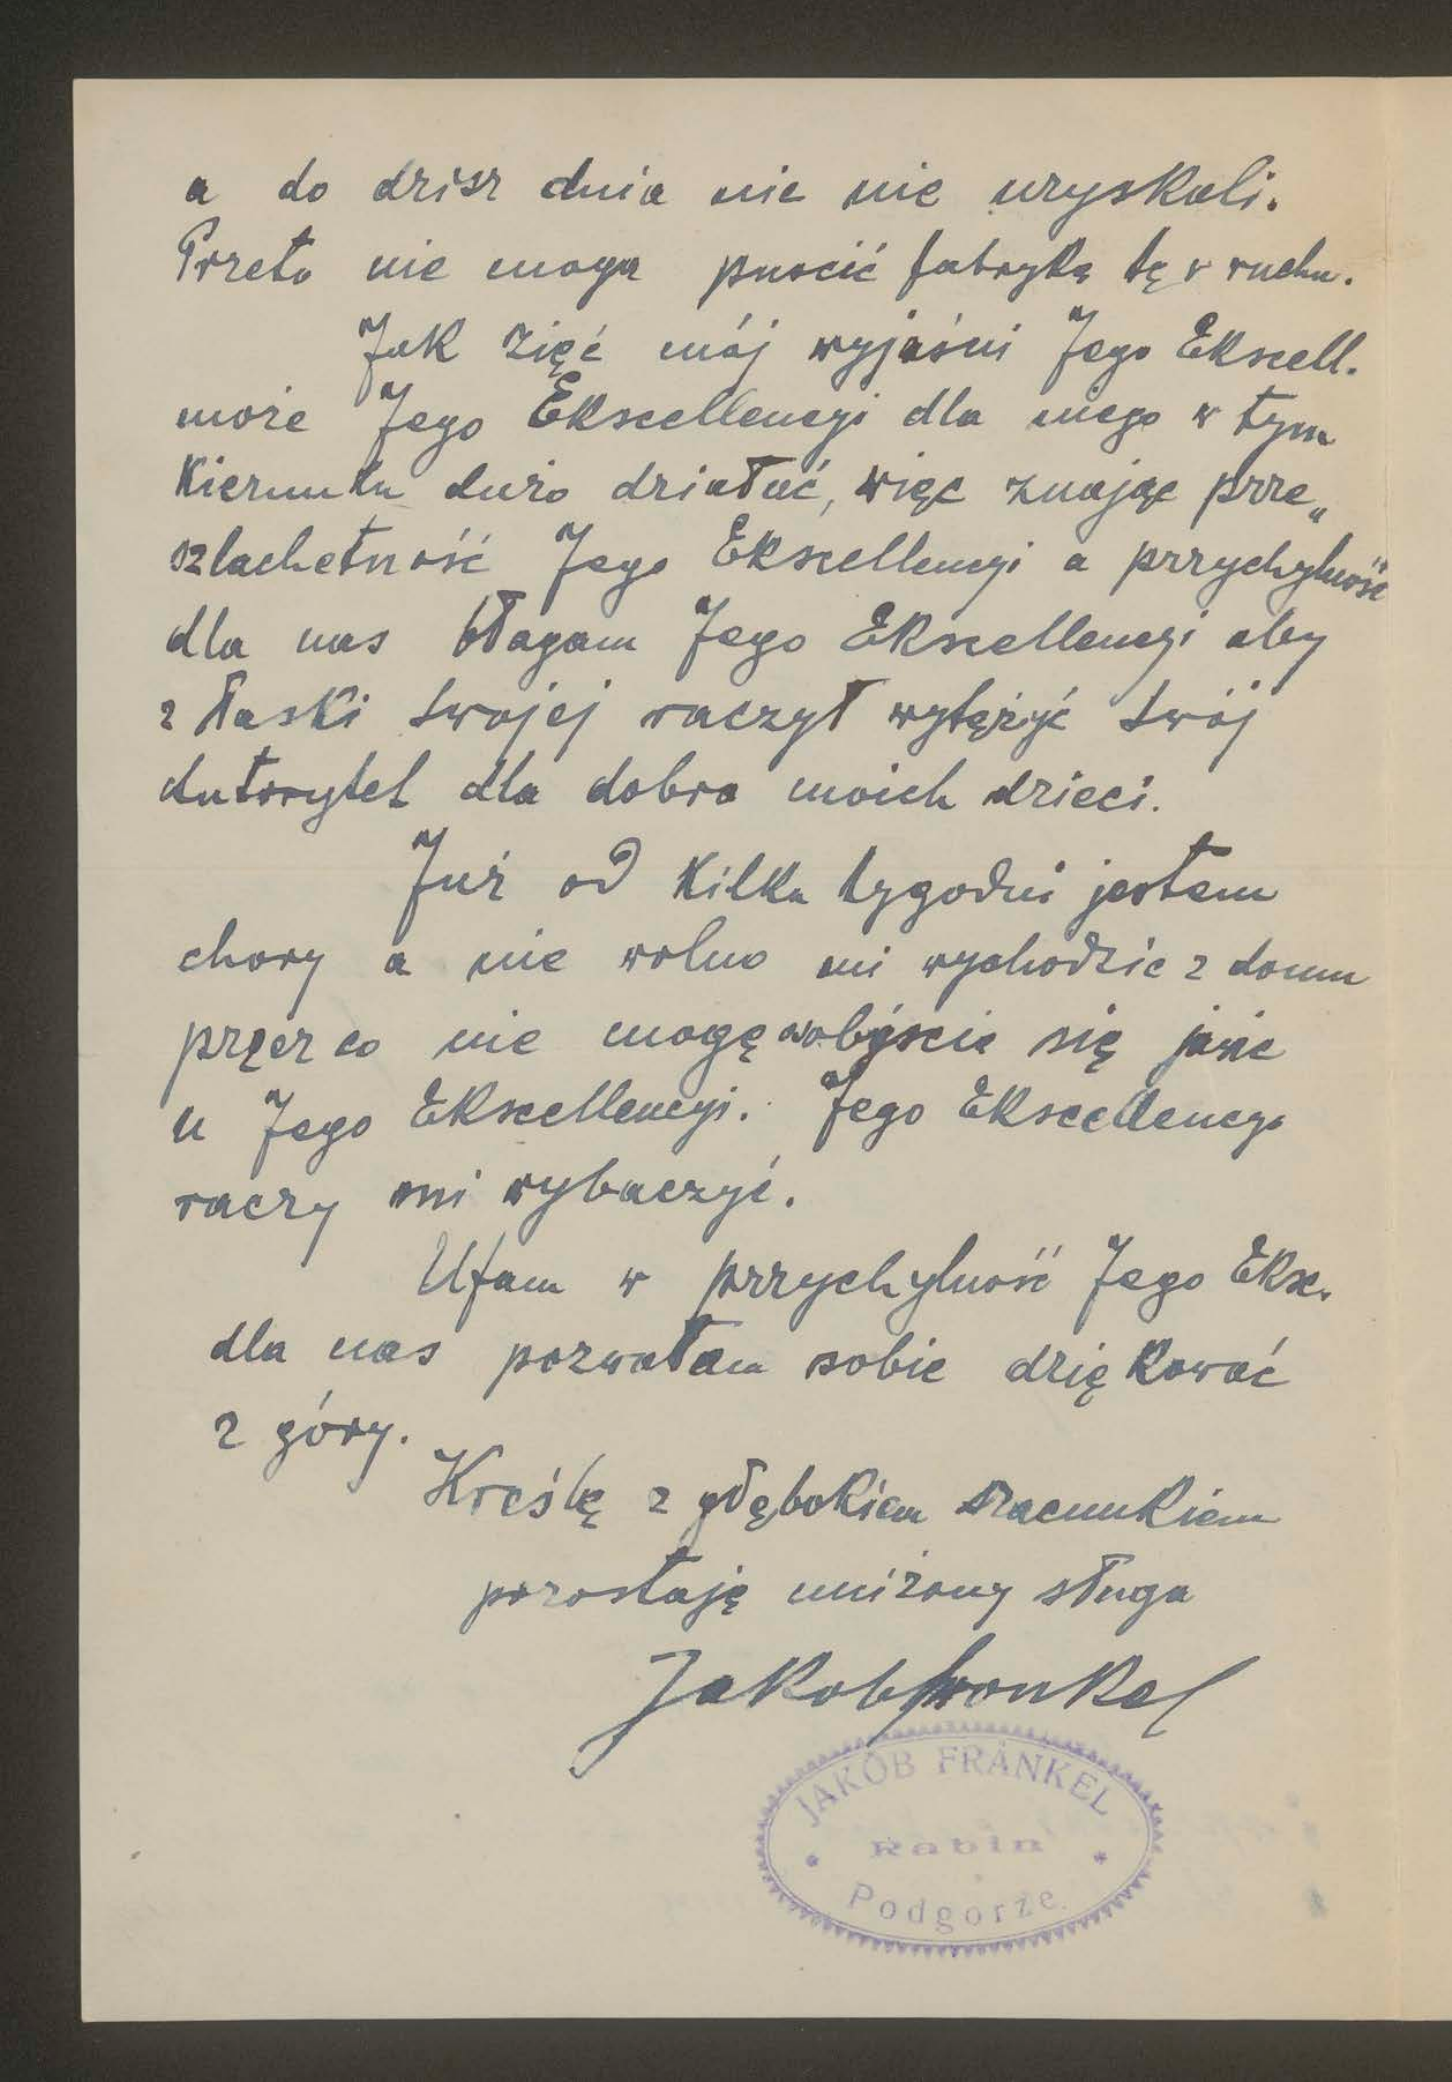 a do dzisz dnia nic nie uzyskali.
Przeto nie mogą puscić fabrykę tę w ruchu.
Jak zięć mój wyjaśni Jego Ekscell.
może Jego Ekscellencyi dla niego w tym
Kierunku dużo działać, więc znając prze„
szlachetność Jego Ekscellencyi a przychylność
dla nas błagam Jego Ekscellencyi aby
z łaski swojej raczył wytężyć swój
Autorytet dla dobra moich dzieci.
Już od kilku tygodni jestem
chory a nie wolno mi wychodzic z domu
przez co nie mogę osobiscie się jawic
u Jego Ekscellencyi. Jego Ekscellencya
raczy mi wybaczyć.
Ufam w przychylność Jego Eksc.
dla nas pozwalam sobie dziękować
z góry.
Kreślę z głębokiem szacunkiem
pozostaję uniżony sługa
Jakob Frankel
JAKÓB FRÄNKEL
Rabin
Podgorze.